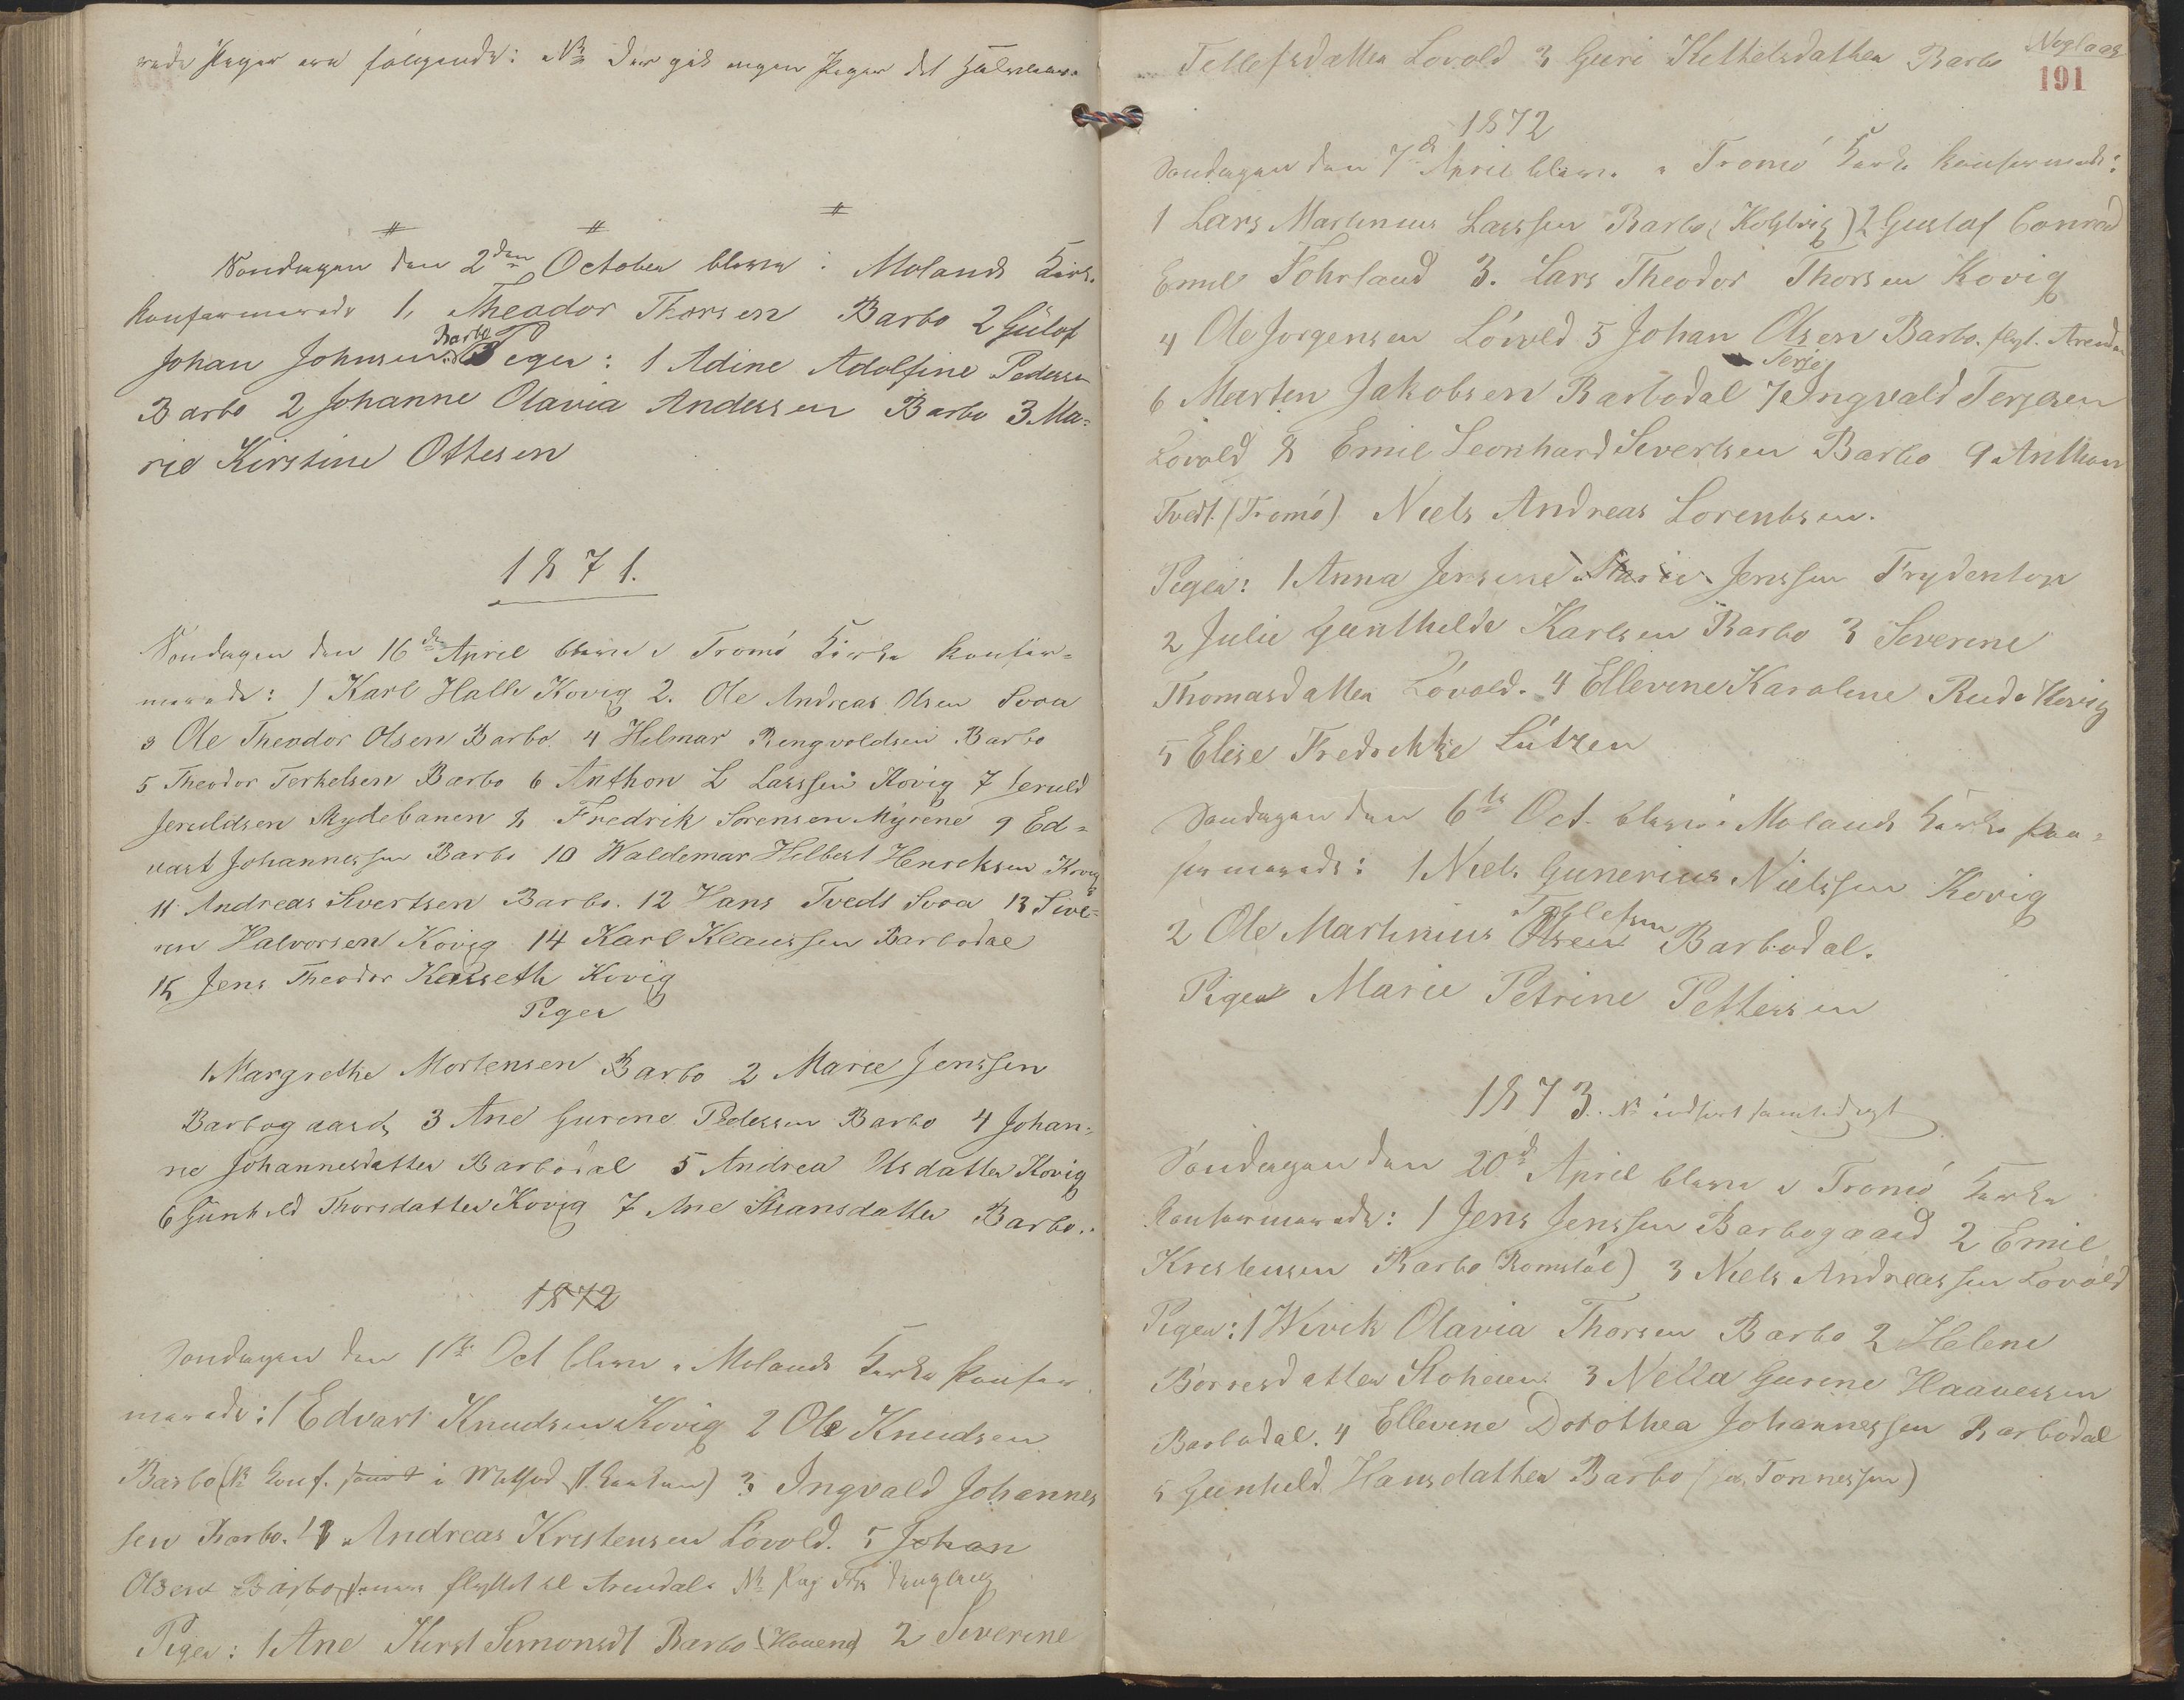 rade Piger ere følgende: Nb Der gik ingen Piger det Halvaar.
Søndagen den 2den October bleve i Molands Kirke
konfirmerede 1, Theodor Thorsen Barbo 2 Gülof
Johan Johnsen Barbo Piger: 1 Adine Adolfine Pedersen
Barbo 2 Johanne Olavia Anderssen Barbo 3 Ma=
rie Kirstine Ottesen
1871.
Søndagen den 16de April bleve i Tromö Kirke konfir=
merede: 1 Karl Halle Kovig 2. Ole Andreas Olsen Svoa
3 Ole Theodor Olsen Barbo. 4 Hilmar Ringvoldsen Barbo
5 Theodor Terkelsen Barbo 6 Anthon L Larssen Kovig 7 Jeruld
Jeruldsen Mydebanen 8 Fredrik Sorensen Myrene 9 Ed=
vart Johannessen Barbo 10 Waldemar Hilbert Henriksen Kovig
11 Andreas Sivertsen Barbo. 12 Hans Tvedt Svoa 13 Sive=
ren Halvorsen Kovig 14 Karl Klaussen Barbodal
15 Jens Theodor Kalseth Kovig
Piger
1 Margrethe Mortensen Barbo 2 Marie Jenssen
Barbogaard, 3 Ane Gurine Pedersen Barbo 4 Johan=
ne Johannesdatter Barbodal 5 Andrea Olsdatter Kovig
6 Gunhild Thorsdatter Kovig 7 Ane Hansdatter Barbo.
1872
Søndagen den 1ste Oct bleve i Molands Kirke konfir
merede: 1 Edvart Knudsen Kovig 2 Ole Knudsen
Barbo (Nb konf. i ) 3 Ingvald Johannes
sen Barbo. 4 Andreas Kristensen Lövold. 5 Johan
Olsen Barbo, flyttet til Arendal. Nb
Piger: 1 Ane Kirst Simonsdt Barbo (Houene) 2 Severine
Tellefsdatter Lovold 3 Guri Kittelsdatter Barbo
191
1872
Søndagen den 7de April bleve i Tromö Kirke konfirmerede:
1 Lars Martinius Larssen Barbo, () 2 Gustaf Conrad
Emil Fohrland 3. Lars Theodor Thorsen Kovig
4 Ole Jorgensen Lövold 5 Johan Olsen Barbo. flyt. Arendal
Terje
6 Marten Jakobsen Barbodal 7 Ingvald Terjesen
Lovold 8 Emil Leonhard Sivertsen Barbo 9 Anthon
Tvedt. (Tromö) Niels Andreas Lorentsen.
Piger: 1 Anna Jensine Marie Jenssen Frydentop
2 Julie Gunthilde Karlsen Barbo 3 Severine
Thomasdatter Lövold. 4 Ellevine Karoline Rud Kovig
5 Elise Fredrikke Lützen
Søndagen den 6te Oct. bleve i Molands Kirke kon=
firmerede: 1 Niels Gunerius Nielssen Kovig
Tellefsen
2 Ole Martinius Olsen Barbodal.
Piger Marie Petrine Petterssen
1873. Nb
Søndagen den 20de April bleve i Tromö Kirke
konfirmerede: 1 Jens Jenssen Barbogaard 2 Emil
Kristensen Barbo Romstöl) 3 Niels Andreassen Lovold
Piger: 1 Wivik Olavia Thorsen Barbo 2 Helene
Börresdatter Stoheien 3 Nella Gurine Haaverssen
Barbodal. 4 Ellevine Dorothea Johannessen Barbodal
5 Gunhild Hansdatter Barbo ( Tonnessen)